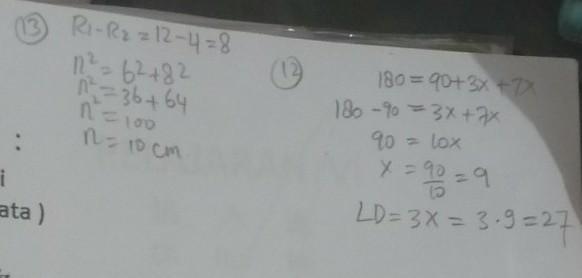 13 R1-R2 = 12-4 = 8
n² = 6²+8²
n² = 36+64
n² = 100
n = 10 cm
12 180 = 90+3x+7x
180-90 = 3x+7x
90 = 10x
x = 90/10 = 9
LD = 3x = 3·9 = 27
:
i
ata )